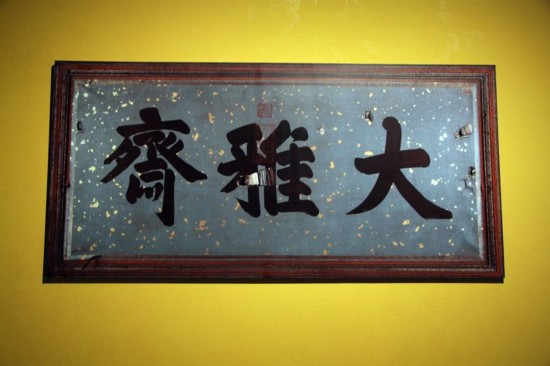 大雅齋